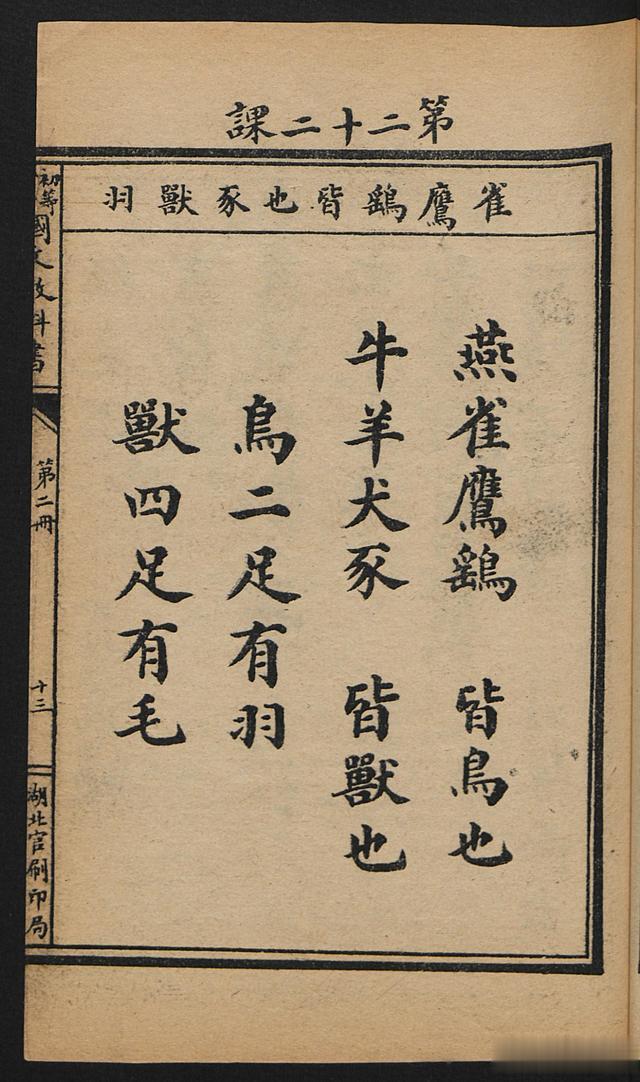 第二十二課
雀鷹鷄皆也豕獸羽
燕雀鷹鷄 皆鳥也
牛羊犬豕 皆獸也
鳥二足有羽
獸四足有毛
初等國文教科書
第二冊
十三
湖北官刷印局